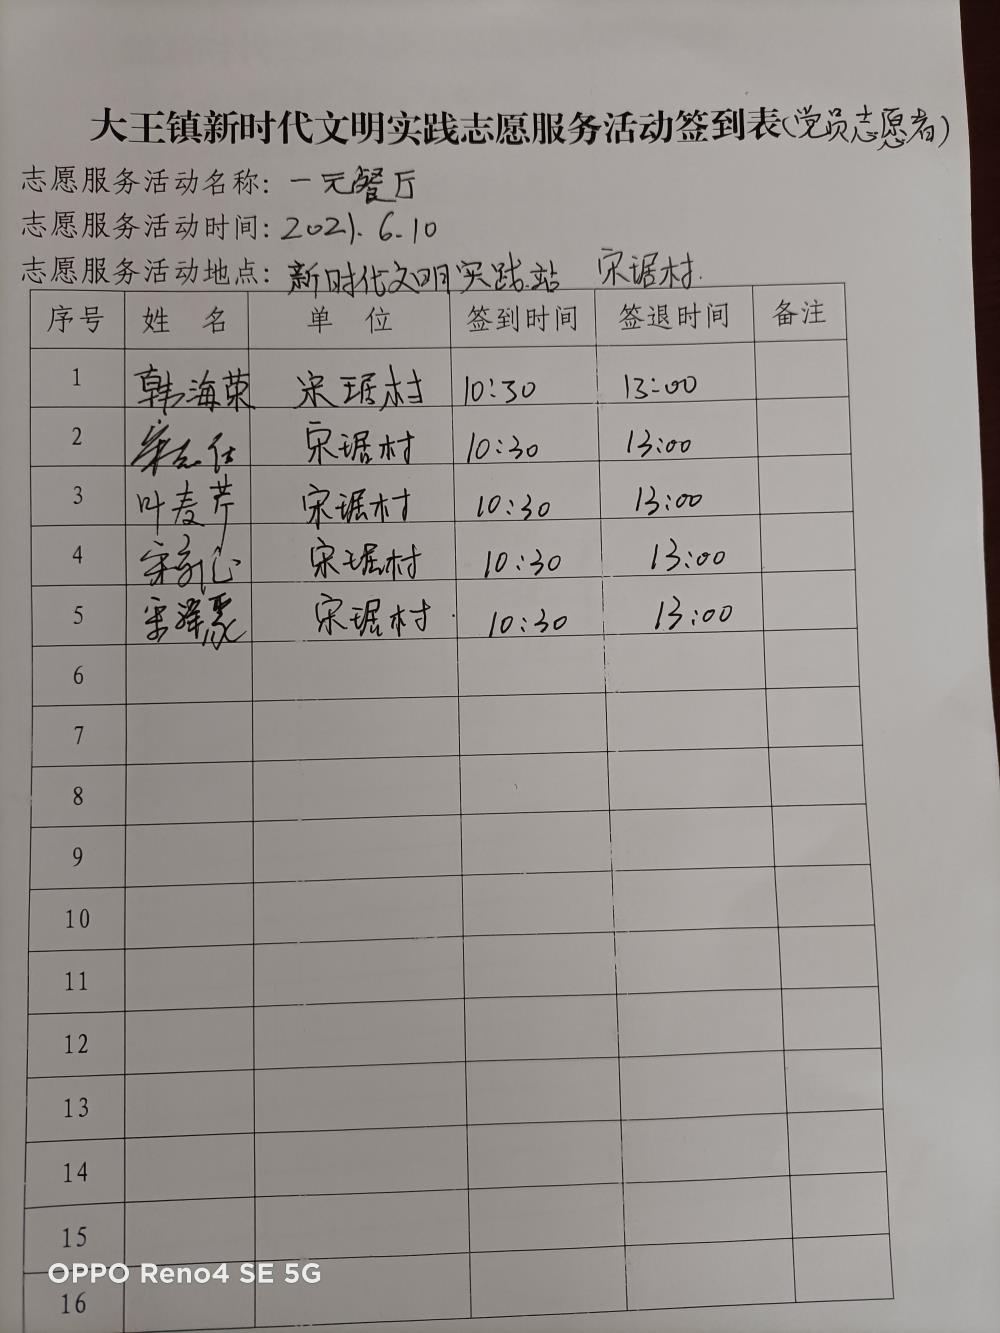 大王镇新时代文明实践志愿服务活动签到表(党员志愿者)
志愿服务活动名称: 一元餐厅
志愿服务活动时间: 2021.6.10
志愿服务活动地点: 新时代文明实践站 宋琚村.
序号 姓 名 单 位 签到时间 签退时间 备注
1 韩海荣 宋琚村 10:30 13:00
2 宋志仕 宋琚村 10:30 13:00
3 叶麦芹 宋琚村 10:30 13:00
4 宋 宋琚村 10:30 13:00
5 宋泽聚 宋琚村 10:30 13:00
6
7
8
9
10
11
12
13
14
15
16
OPPO Reno4 SE 5G